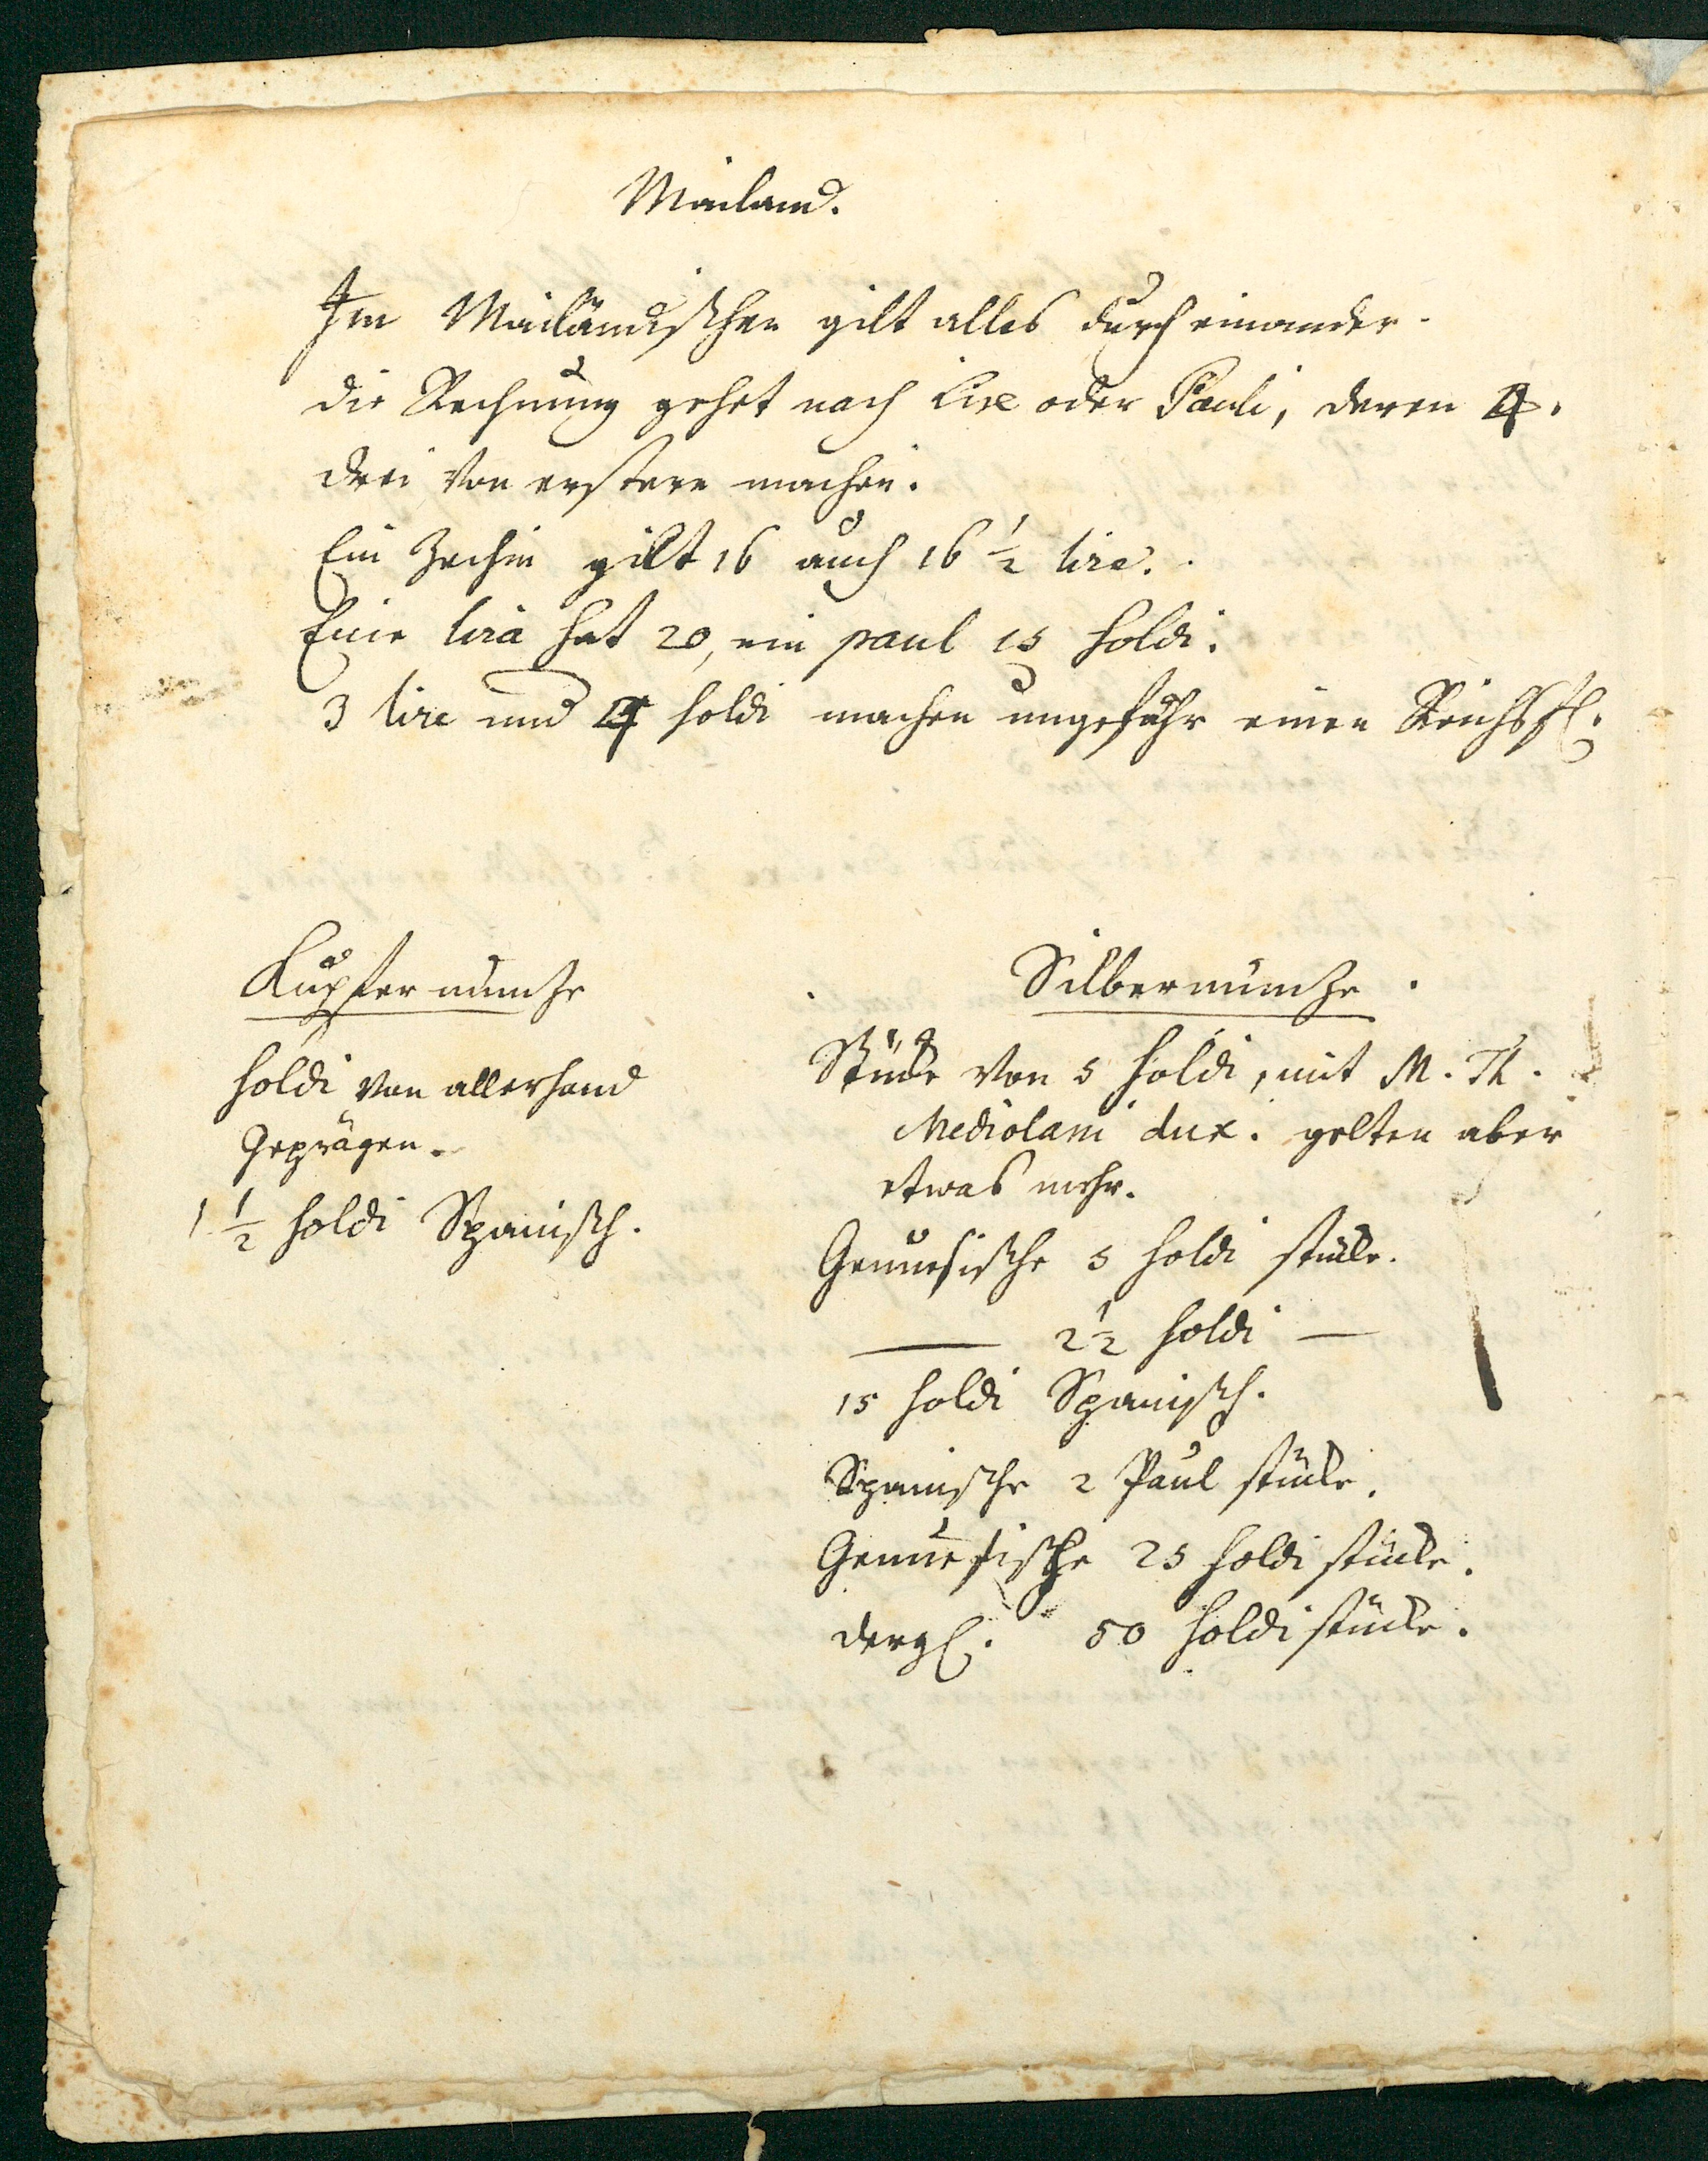 Mailand.
Im Mailändischen gilt alles durch einander.
die Rechnung gehet nach Lire oder Pauli, deren 4.
drei von erstern machen.
Ein Zechin gilt 16 auch 16 1/2 lire.
Eine lira hat 20, ein paul 15 soldi.
3 lire und 4 soldi machen ungefähr einen Reichsfl.
Kupfermünze
soldi von allerhand
Geprägen.
1 1/2 soldi Spanisch.
Silbermünze.
Stücke von 5 soldi, mit M. Th.
Mediolani dux. gelten aber
etwas mehr.
Genuesische 5 soldi stücke.
— 2 1/2 soldi —
15 soldi Spanisch.
Spanische 2 Paul stücke.
Genuesische 25 soldi stücke.
dergl. 50 soldi stücke.